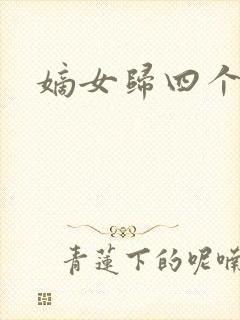 嫡女歸四个
青蓮下的呢喃